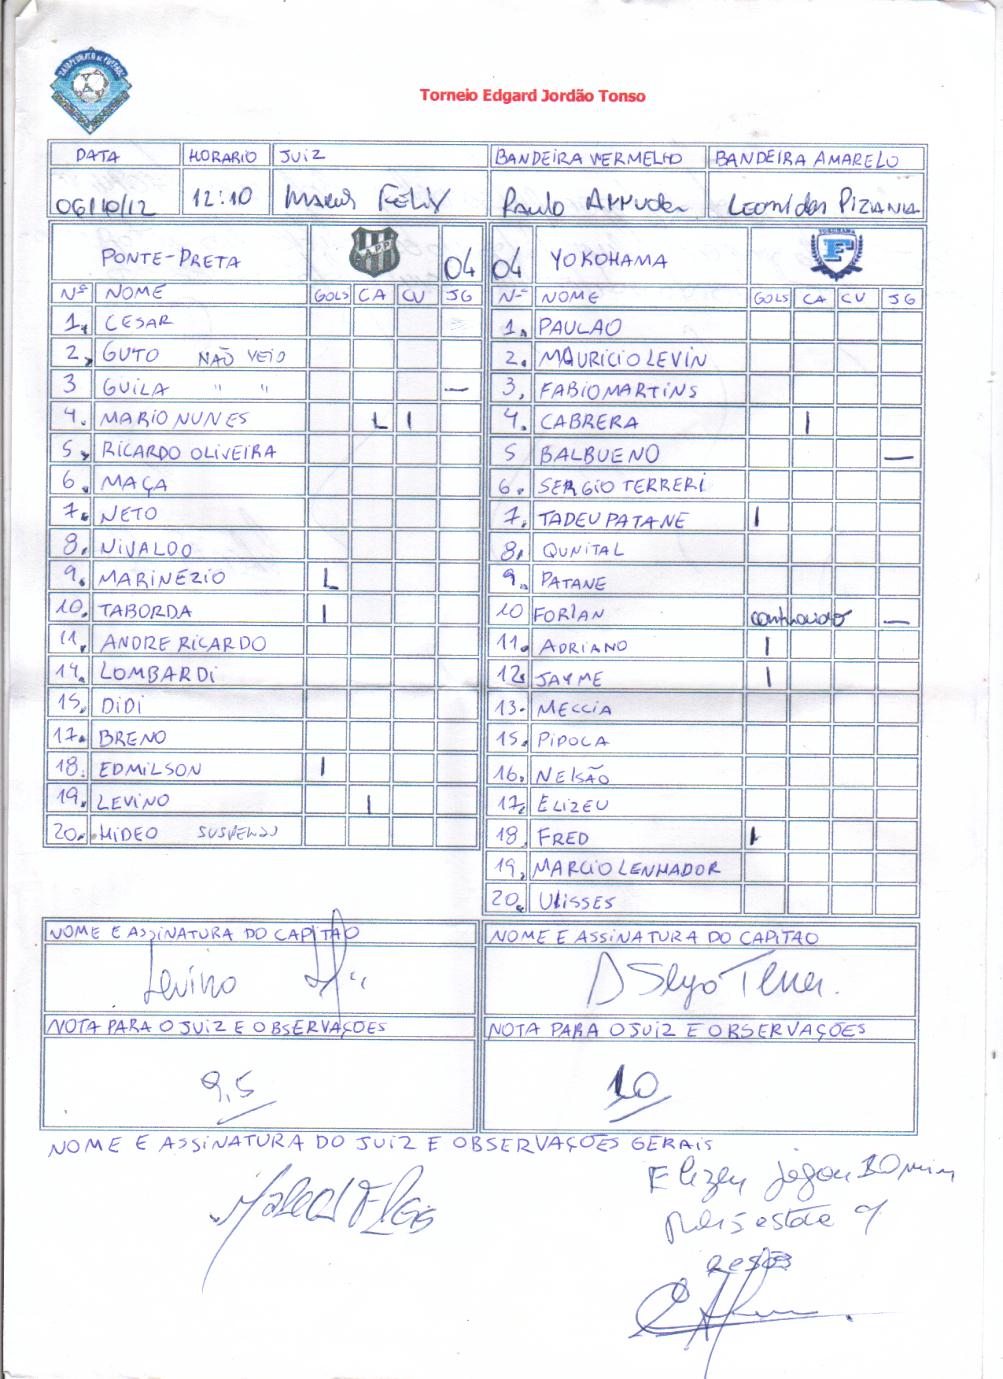 CAMPEONATO DE FUTEBOL
Torneio Edgard Jordão Tonso
DATA HORARIO JUIZ BANDEIRA VERMELHO BANDEIRA AMARELO
06/10/12 12:10 Marcos Felix Paulo Arruda Leonidas Piziania
PONTE-PRETA APP 04 04 YOKOHAMA YOKOHAMA F
Nº NOME GOLS CA CV JG Nº NOME GOLS CA CV JG
1. CESAR 1. PAULAO
2. GUTO NÃO VEIO 2. MAURICIO LEVIN
3 GUILA " " — 3. FABIO MARTINS
4. MARIO NUNES L I 4. CABRERA I
5. RICARDO OLIVEIRA 5 BALBUENO —
6. MAÇA 6. SERGIO TERRERI
7. NETO 7. TADEU PATANE I
8. NIVALDO 8. QUNITAL
9. MARINEZIO L 9. PATANE
10. TABORDA I 10 FORLAN contundido —
11. ANDRE RICARDO 11. ADRIANO I
14. LOMBARDI 12. JAYME I
15. DIDI 13. MECCIA
17. BRENO 15. PIPOCA
18. EDMILSON I 16. NELSÃO
19. LEVINO I 17. ELIZEU
20. HIDEO SUSPENSO 18. FRED I
19. MARCIO LENHADOR
20. ULISSES
NOME E ASSINATURA DO CAPITÃO NOME E ASSINATURA DO CAPITAO
Levino
NOTA PARA O JUIZ E OBSERVAÇÕES NOTA PARA O JUIZ E OBSERVAÇÕES
9,5 10
NOME E ASSINATURA DO JUIZ E OBSERVAÇÕES GERAIS
Elizeu jogou 10 min